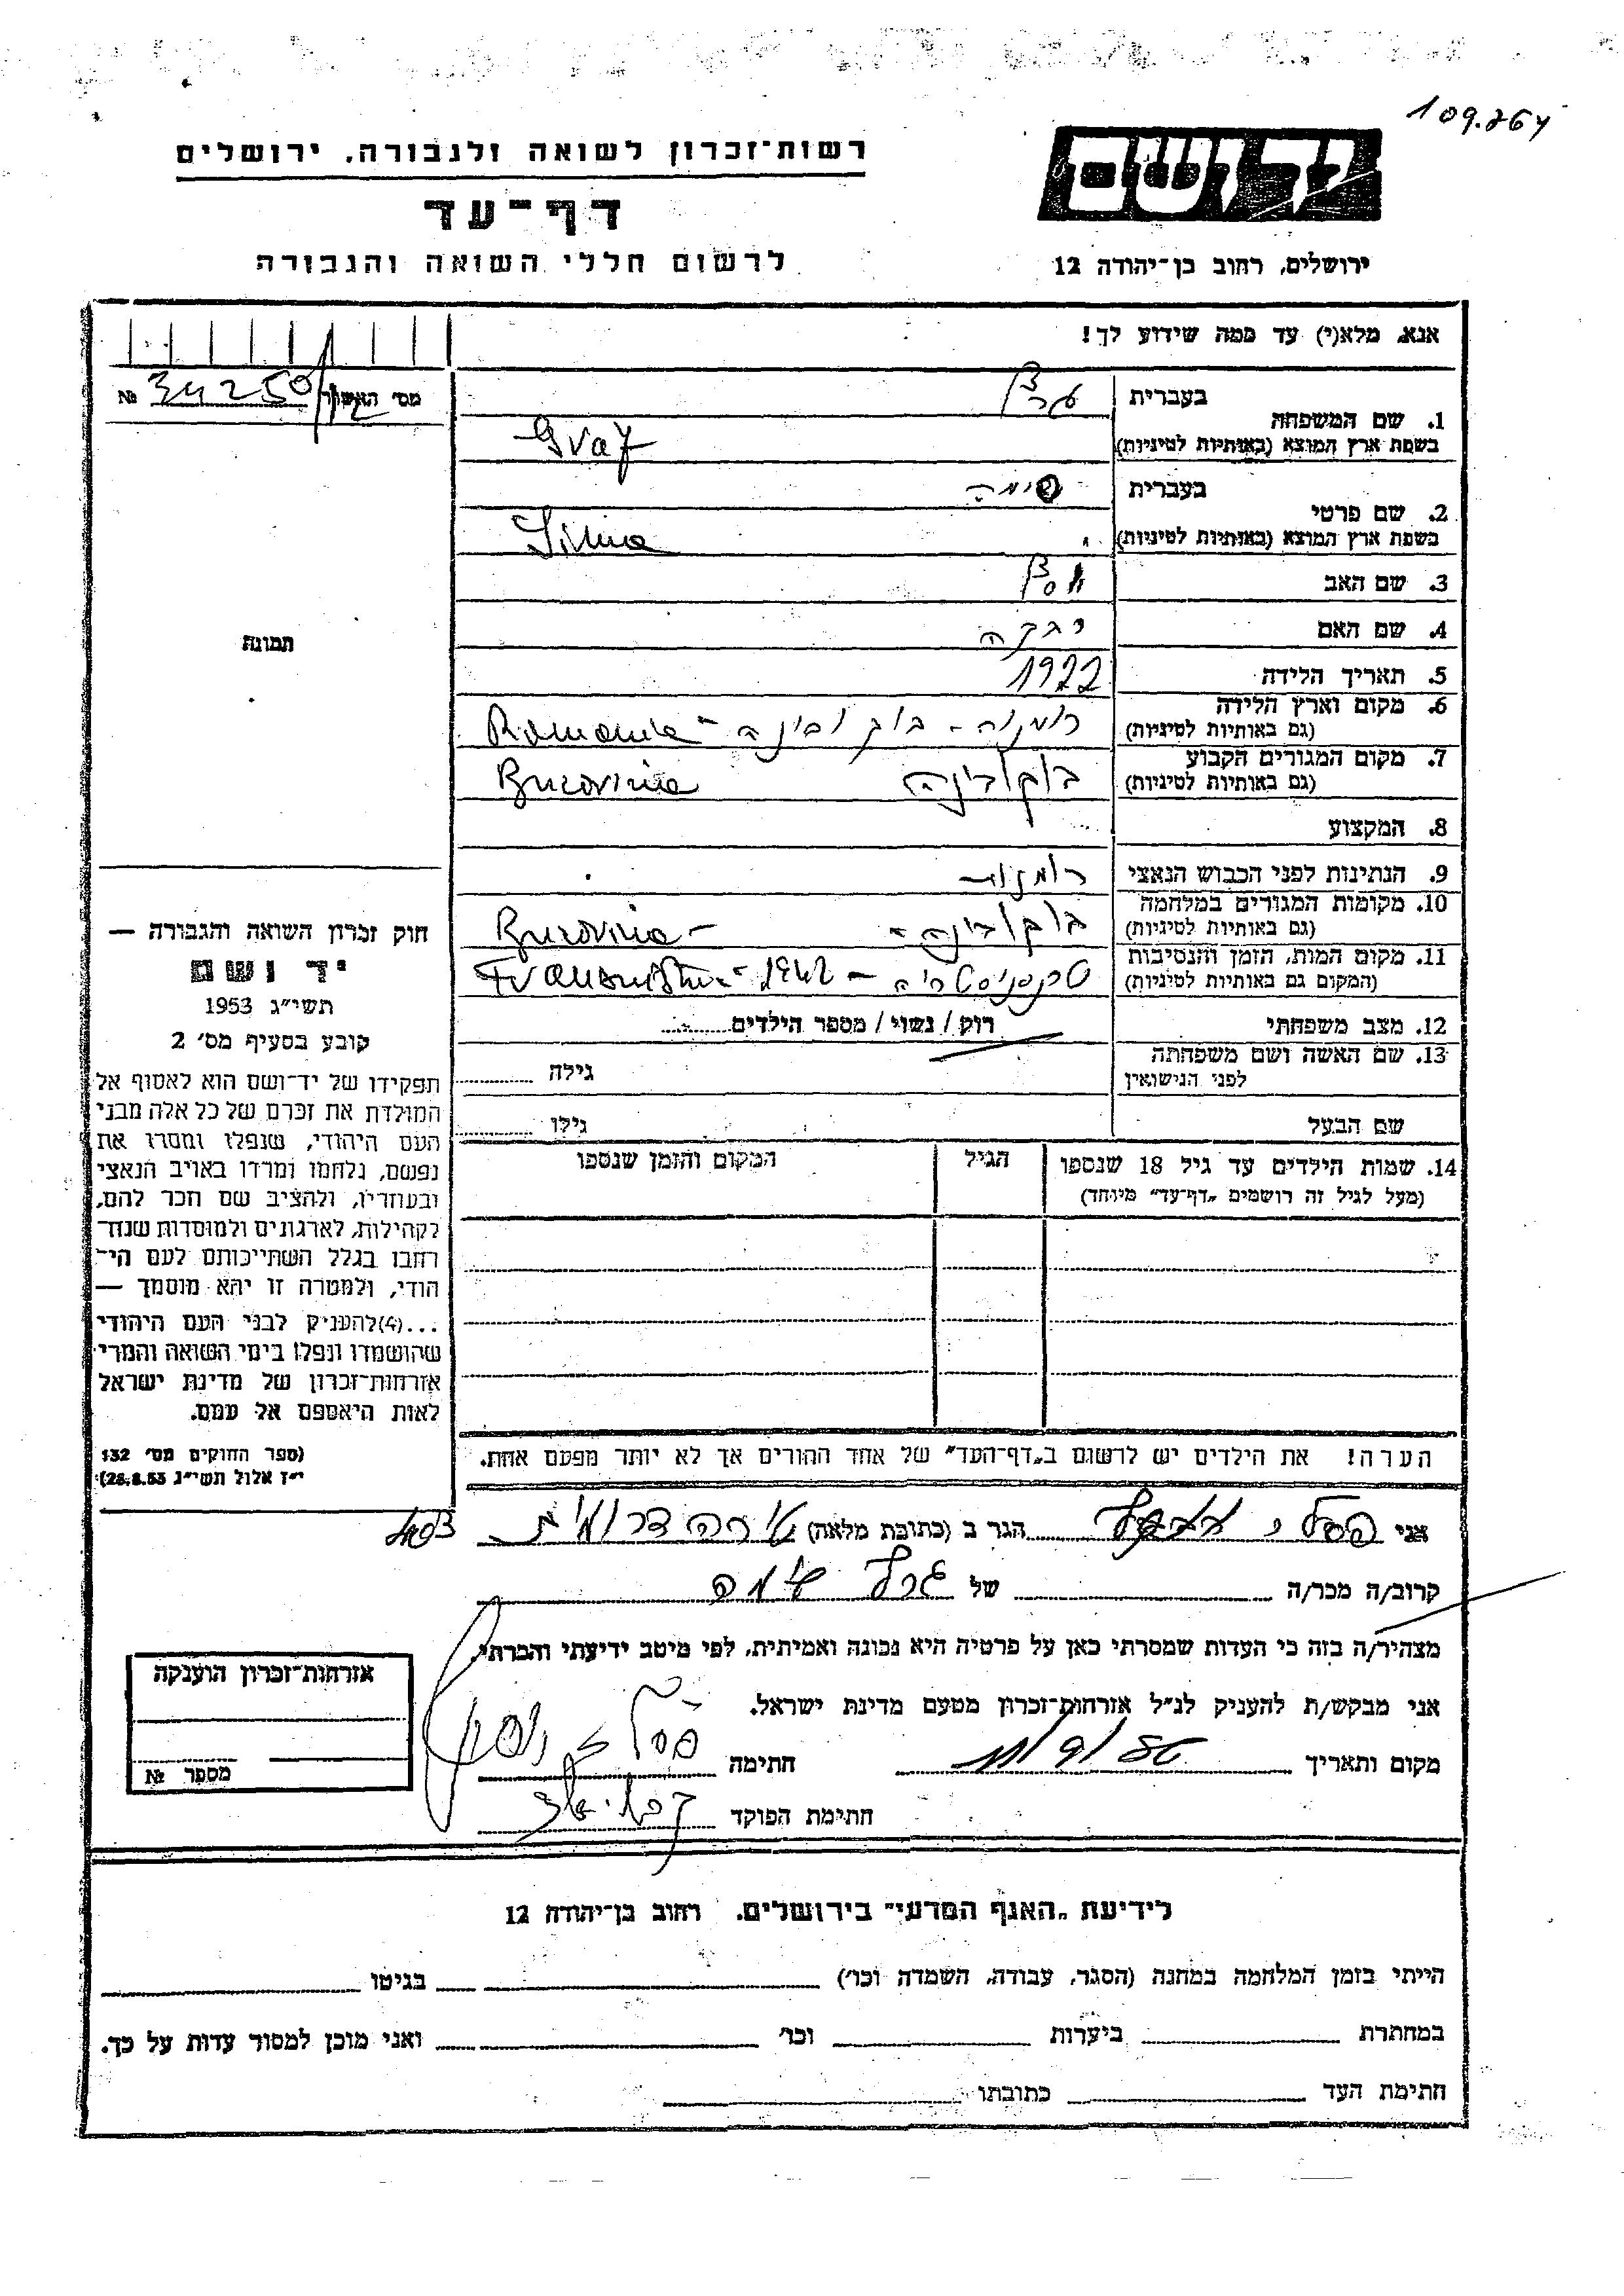 109.264
רשות־זכרון לשואה ולגבורה, ירושלים
יד ושם
דף־עד
לרשום חללי השואה והגבורה
ירושלים, רחוב בן־יהודה 12
אנא, מלא(י) עד כמה שידוע לך!
מס' האשור № 34250/12
1. שם המשפחה בעברית גרף
בשפת ארץ המוצא (באותיות לטיניות) Graf
2. שם פרטי בעברית סימה
בשפת ארץ המוצא (באותיות לטיניות) Sima
3. שם האב
4. שם האם רבקה
5. תאריך הלידה 1922
6. מקום וארץ הלידה רומניה - בוקובינה - Romania
(גם באותיות לטיניות)
7. מקום המגורים הקבוע בוקובינה Bucovina
(גם באותיות לטיניות)
8. המקצוע
9. הנתינות לפני הכבוש הנאצי רומנית
10. מקומות המגורים במלחמה בוקובינה - Bucovina -
(גם באותיות לטיניות)
11. מקום המות, הזמן והנסיבות טרנסניסטריה - 1942 - Transnistria
(המקום גם באותיות לטיניות)
12. מצב משפחתי רווק / נשוי / מספר הילדים
13. שם האשה ושם משפחתה גילה
לפני הנישואין
שם הבעל גילו
14. שמות הילדים עד גיל 18 שנספו הגיל המקום והזמן שנספו
(מעל לגיל זה רושמים "דף־עד" מיוחד)
הערה! את הילדים יש לרשום ב"דף־העד" של אחד ההורים אך לא יותר מפעם אחת.
תמונה
חוק זכרון השואה והגבורה —
יד ושם
תשי"ג 1953
קובע בסעיף מס' 2
תפקידו של יד־ושם הוא לאסוף אל
המולדת את זכרם של כל אלה מבני
העם היהודי, שנפלו ומסרו את
נפשם, נלחמו ומרדו באויב הנאצי
ובעוזריו, ולהציב שם וזכר להם,
לקהילות, לארגונים ולמוסדות שנח־
רבו בגלל השתייכותם לעם הי־
הודי, ולמטרה זו יהא מוסמך —
...(4) להעניק לבני העם היהודי
שהושמדו ונפלו בימי השואה והמרי
אזרחות־זכרון של מדינת ישראל
לאות היאספם אל עמם.
(ספר החוקים מס' 132
י"ז אלול תשי"ג 28.8.53)
אני הגר ב (כתובת מלאה) טירה דרומית
קרוב/ה מכר/ה של גרף סימה
מצהיר/ה בזה כי העדות שמסרתי כאן על פרטיה היא נכונה ואמיתית, לפי מיטב ידיעתי והכרתי.
אני מבקש/ת להעניק לנ"ל אזרחות־זכרון מטעם מדינת ישראל.
מקום ותאריך חתימה
חתימת הפוקד
אזרחות־זכרון הוענקה
מספר №
לידיעת "האגף המדעי" בירושלים, רחוב בן־יהודה 12
הייתי בזמן המלחמה במחנה (הסגר, עבודה, השמדה וכו') בגיטו
במחתרת ביערות וכו' ואני מוכן למסור עדות על כך.
חתימת העד כתובתו